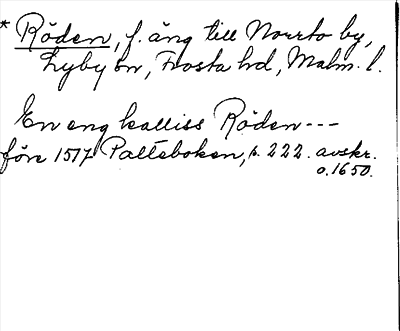 * Röden, f. äng till Norrto by,
Lyby sn, Frosta hd, Malm. l.
En eng kalliss Röden ---
före 1517 Palteboken, s. 222. avskr.
o. 1650.